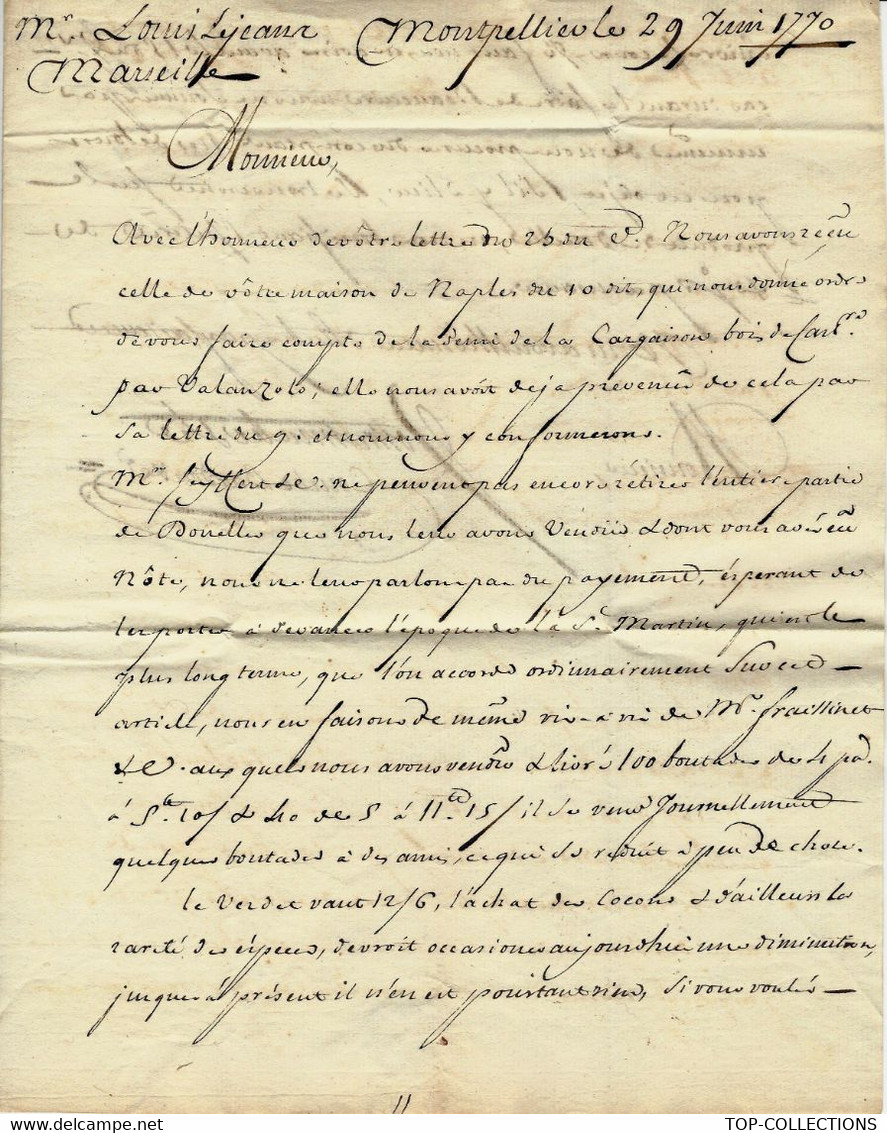 Mr Louis Lejeans Montpellier le 29 Juin 1770
Marseille
Monsieur,
Avec l'honneur de vôtre lettre du 25 du Ct. Nous avons reçeu
celle de vôtre maison de Naples du 10 dit, qui nous donne ordre
de vous faire compte de la demi de la Cargaison bois de
par Valanzolo; elle nous avoit deja prevenüe de cela par
sa lettre du 9. et nous nous y conformerons.
Mrs ne peuvent pas encore rétirer l'entiere partie
de Douelles que nous leur avons Vendüe & dont vous avés eu
Nôte, nous ne leur parlons pas du payement, ésperant de
les porter à devancer l'époque de la St. Martin, qui est le
plus long terme, que l'on accorde ordinnairement sur cet
article, nous en faisons de même vis-a-vis de Mrs. fraissinet
& C. aux quels nous avons vendu & livré 100 boutades de 4 pd.
à 10/ & 40 de 5 à 11 15/ il se vend Journellement
quelques boutades à des amis, ce qui se reduit à peu de chose.
le Verdet vaut 12/6, l'achat des Cocons & d'ailleurs la
rareté des éspeces, devroit occasioner aujourdhui une diminution,
jusques à présent il n'en est pourtant rien, Si vous voulés
TOP-COLLECTIONS